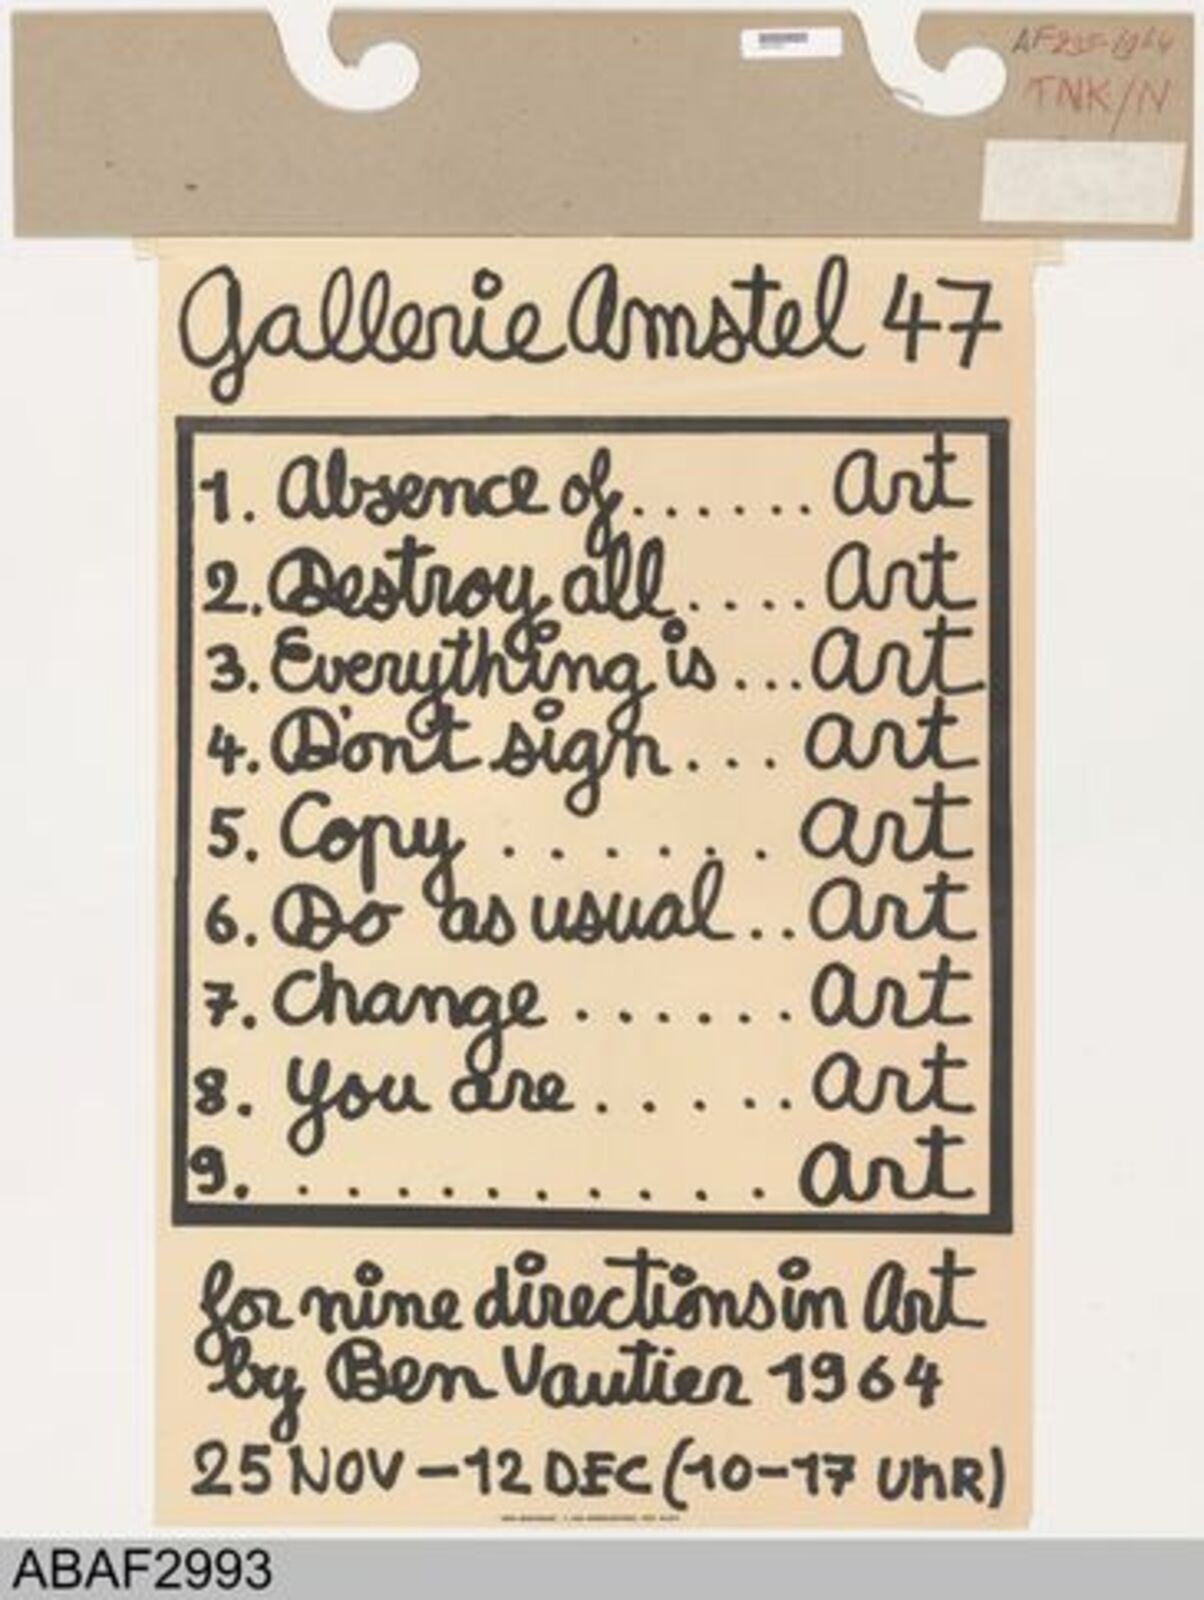 AF235-1964
TNK/N
Gallerie Amstel 47
1. Absence of...... Art
2. Destroy all.... Art
3. Everything is... Art
4. Do'nt sign... art
5. Copy ...... art
6. Do as usual.. art
7. Change ...... art
8. you are ..... art
9. .......... art
for nine directions in Art
by Ben Vautier 1964
25 NOV – 12 DEC (10-17 UhR)
ABAF2993